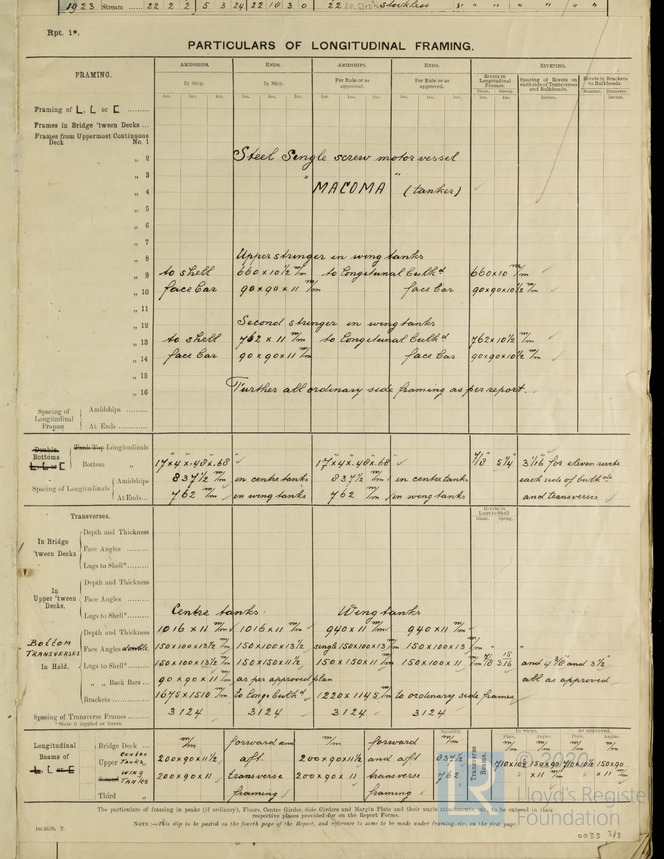 1923 Stream 22 2 2 5 3 24 22 18 3 0 22 Stockless
Rpt. 1*.
PARTICULARS OF LONGITUDINAL FRAMING.
FRAMING. AMIDSHIPS. ENDS. AMIDSHIPS. ENDS. RIVETING.
In Ship. In Ship. Per Rule or as approved. Per Rule or as approved. Rivets in Longitudinal Frames. Spacing of Rivets on each side of Transverses and Bulkheads. Rivets in Brackets to Bulkheads.
Ins. Ins. Ins. Ins. Ins. Ins. Ins. Ins. Ins. Ins. Ins. Ins. Diam. Ins. Spcng. Ins. Inches. Number. Diameter. Inches.
Framing of L, L or C
Frames in Bridge 'tween Decks ...
Frames from Uppermost Continuous Deck No. 1
„ 2 Steel Single screw motor vessel
„ 3
„ 4 "MACOMA" (tanker)
„ 5
„ 6
„ 7
„ 8 Upper stringer in wing tanks
„ 9 to shell 660 x 10½ m/m to Longitudinal Bulkd 660 x 10 m/m
„ 10 face bar 90 x 90 x 11 m/m face bar 90 x 90 x 10½ m/m
„ 11
„ 12 Second stringer in wing tanks
„ 13 to shell 762 x 11 m/m to Longitudinal Bulkd 762 x 10½ m/m
„ 14 face bar 90 x 90 x 11 m/m face bar 90 x 90 x 10½ m/m
„ 15
„ 16 Further all ordinary side framing as per report.
Spacing of Longitudinal Frames Amidships
At Ends
Double Bottoms L, L or C Tank Top Longitudinals
Bottom „ 17" x 4" x .48 x .68 17" x 4" x .48 x .68 7/8 5¼ 3 1/16 for eleven rivets
Spacing of Longitudinals Amidships 837½ m/m in centre tanks 837½ m/m in centre tanks each side of bulkds
At Ends... 762 m/m in wing tanks 762 m/m in wing tanks and transverses
Transverses. Rivets in Lugs to Shell
Diam. Spcng.
In Bridge 'tween Decks Depth and Thickness
Face Angles
Lugs to Shell*
In Upper 'tween Decks. Depth and Thickness
Face Angles
Lugs to Shell* Centre tanks Wing tanks
BOTTOM TRANSVERSES In Hold. Depth and Thickness 1016 x 11 m/m 1016 x 11 m/m 940 x 11 m/m 940 x 11 m/m
Face Angles double 150x100x13½ m/m 150x100x13½ m/m single 150x100x13 m/m 150x100x13 m/m
Lugs to Shell* 150x100x13½ m/m 150x150x11½ m/m 150x150x11 m/m 150x100x11 m/m and 3 9/16 and 3½
„ „ Back Bars 90 x 90 x 11 m/m as per approved plan all as approved
Brackets 1675x1510 m/m to longl bulkd 1220 x 1145 m/m to ordinary side frames
Spacing of Transverse Frames 3124 3124 3124 3124
* State if joggled or liners.
Longitudinal Beams of L, L or C Bridge Deck m/m forward and m/m forward m/m In Ship. As approved.
Upper CENTRE TANKS 200x90x11½ aft. 200x90x11½ and aft 837½ Transverse Beams. 710x10½ 150x90 x11 m/m 710x10½ 150x90 x11 m/m
Second WING TANKS 200x90x11 transverse 200x90x11 transverse 762
Third „ framing framing
The particulars of framing in peaks (if ordinary), Floors, Centre Girder, Side Girders and Margin Plate and their angle attachments, etc., to be entered in their
respective places provided for on the Report Forms.
NOTE:—This slip to be pasted on the fourth page of the Report, and reference to same to be made under framing, etc., on the first page.
© 2020
Lloyd's Register
Foundation
0033 3/3